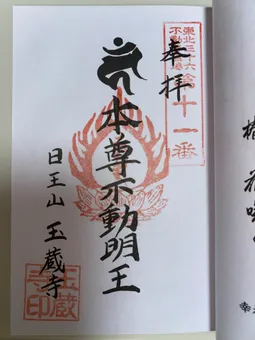 奉拝
東北三十六
第十一番
本尊不動明王
日王山 玉蔵寺
玉蔵
寺印